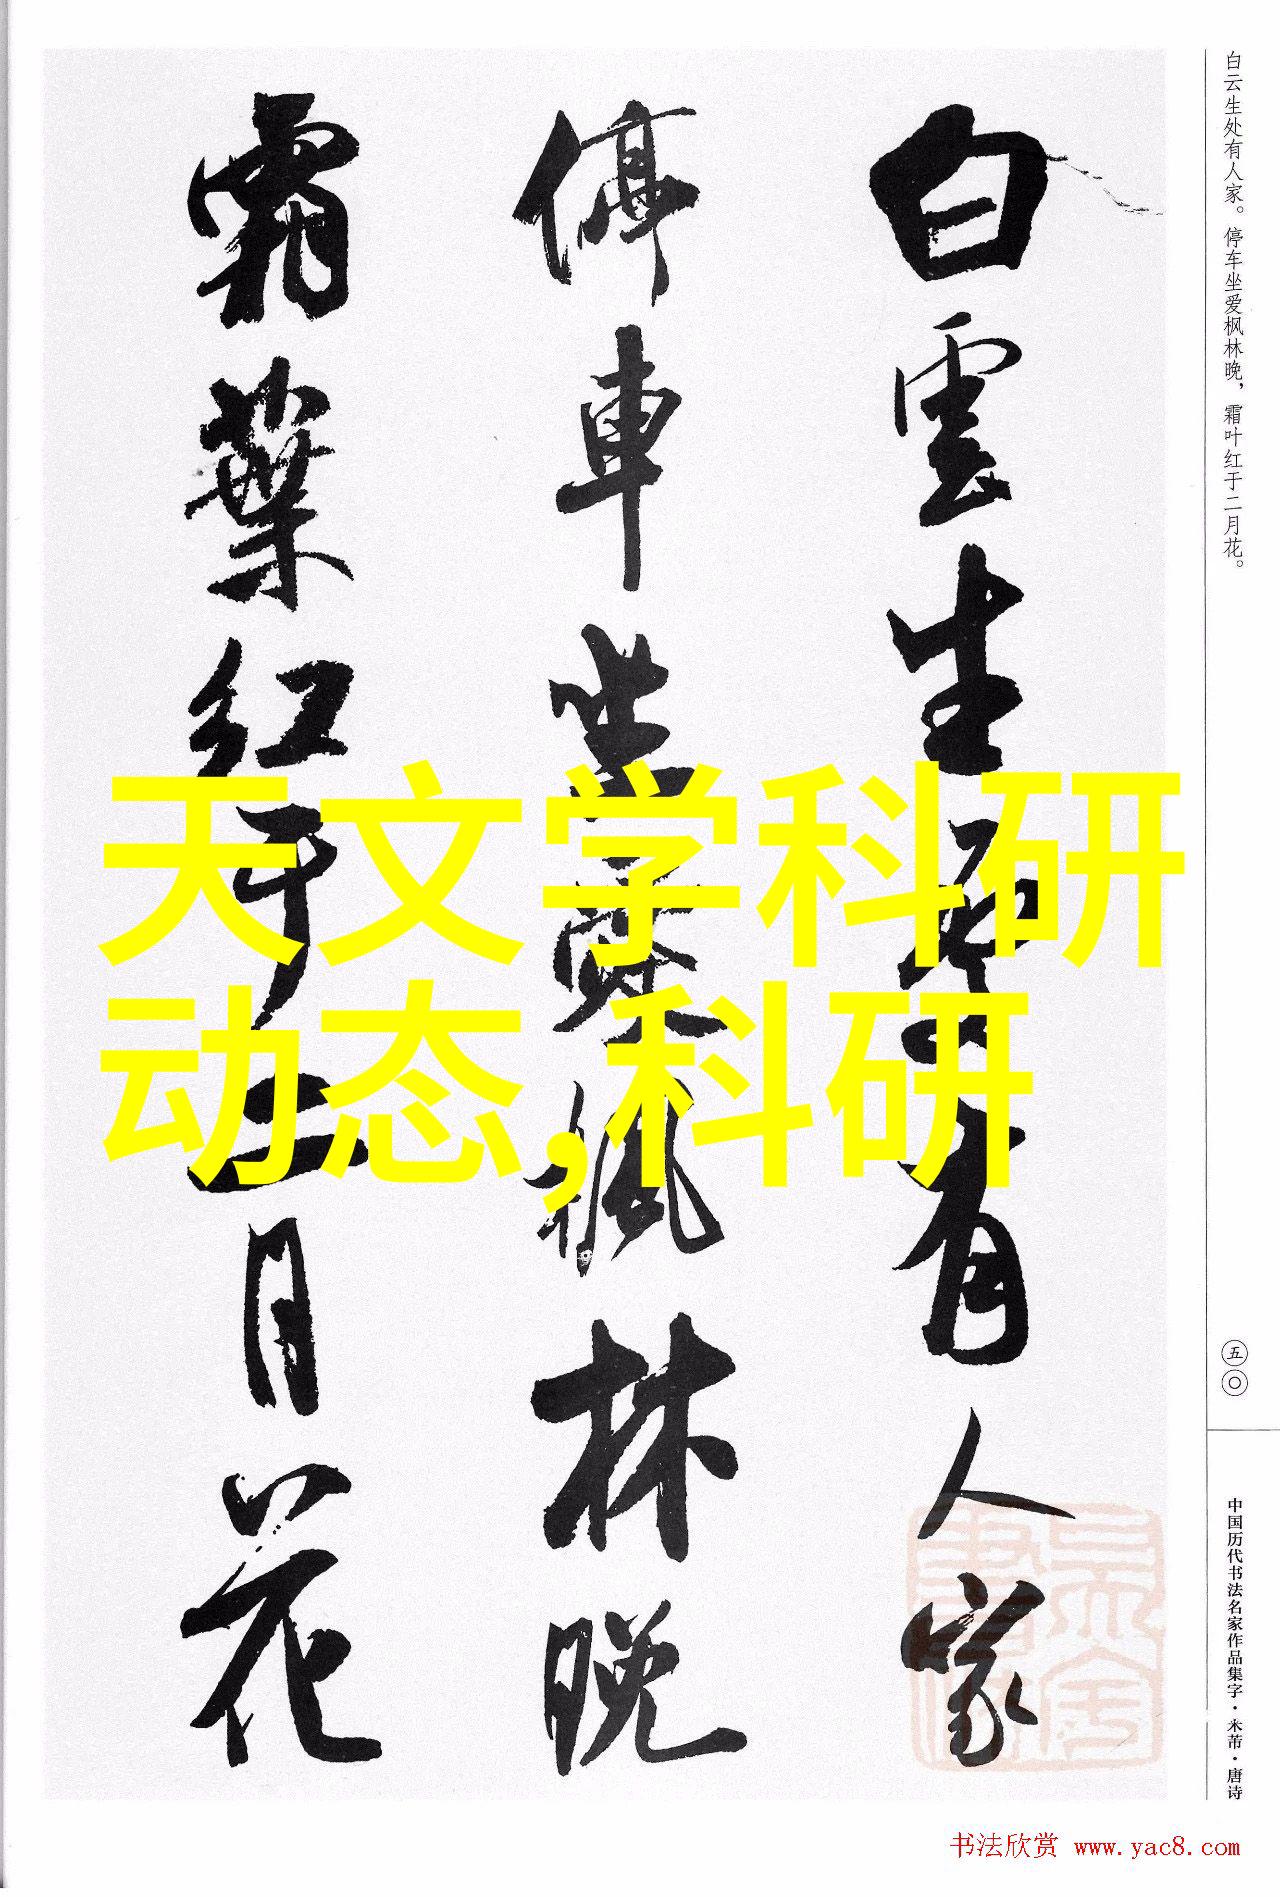 白云生处有人家。停车坐爱枫林晚，霜叶红于二月花。
白雲生處有人家
停車坐愛楓林晚
霜葉红于二月花
天文学科研
动态,科研
五〇
中国历代书法名家作品集字·米芾·唐诗
书法欣赏 www.yac8.com